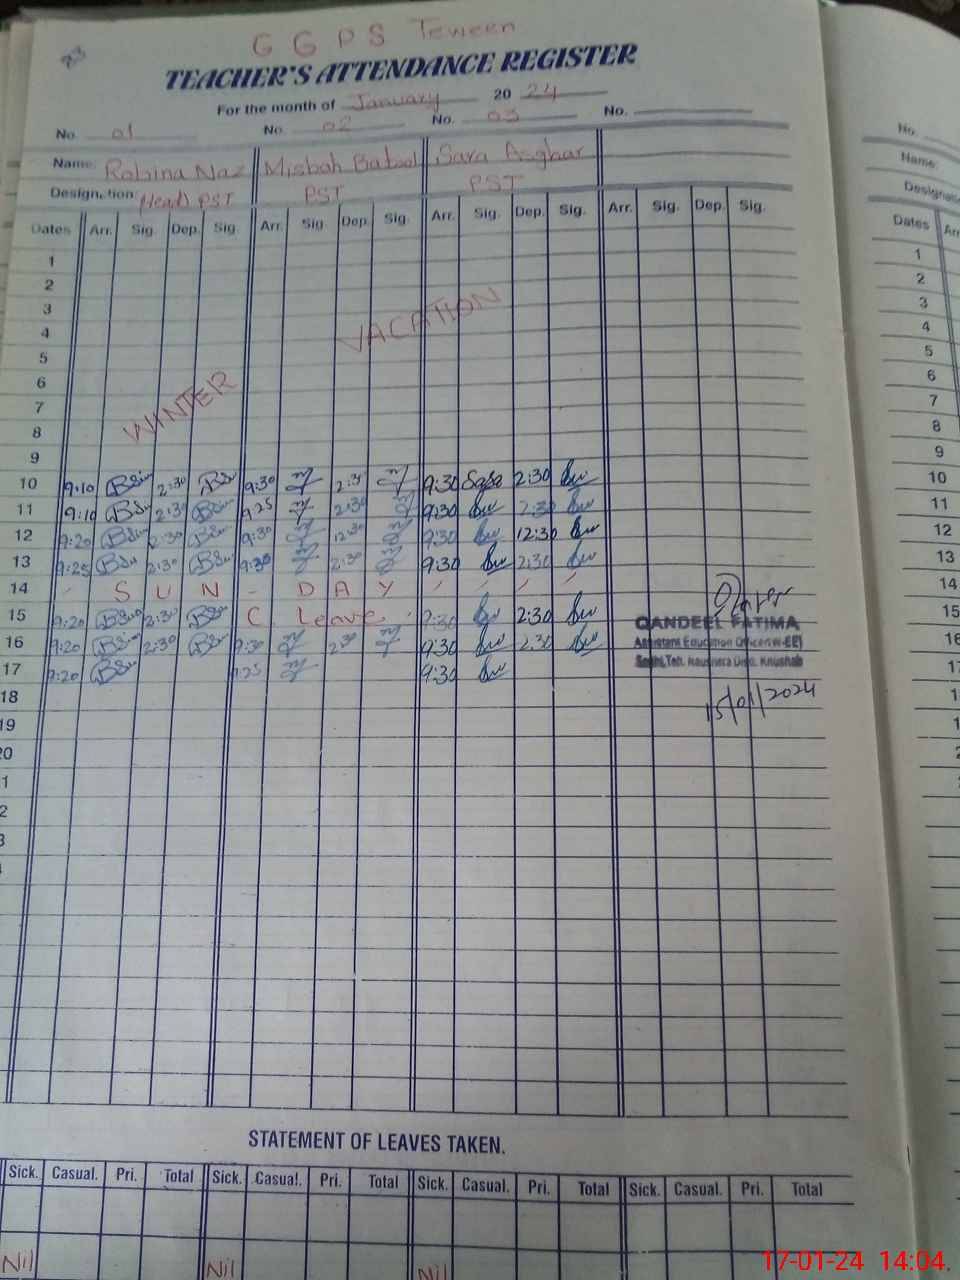 23
G G P S Teween
TEACHER'S ATTENDANCE REGISTER
For the month of January 20 24
No. 01 No. 02 No. 03 No.
Name: Robina Naz Misbah Batool Sara Asghar
Designation: Head PST PST PST
Dates Arr. Sig. Dep. Sig. Arr. Sig. Dep. Sig. Arr. Sig. Dep. Sig. Arr. Sig. Dep. Sig.
1
2
3
4
5
6
7
8
9
WINTER VACATION
10 9:10 2:30 9:30 2:30 9:30 2:30
11 9:10 2:30 9:25 2:30 9:30 2:30
12 9:20 2:30 9:30 12:30 9:30 12:30
13 9:25 2:30 9:30 2:30 9:30 2:30
14 SUN - DAY
15 9:20 2:30 C. Leave 9:30 2:30
16 9:20 2:30 9:30 2:30 9:30 2:30
17 9:20 9:25 9:30
18
19
20
1
2
3
QANDEEL FATIMA
Assistant Education Officer(W-EE)
Teh. Naushera Distt. Khushab
15/01/2024
STATEMENT OF LEAVES TAKEN.
Sick. Casual. Pri. Total Sick. Casual. Pri. Total Sick. Casual. Pri. Total Sick. Casual. Pri. Total
Nil Nil Nil
No.
Name:
Dates
1
2
3
4
5
6
7
8
9
10
11
12
13
14
15
16
17-01-24 14:04.